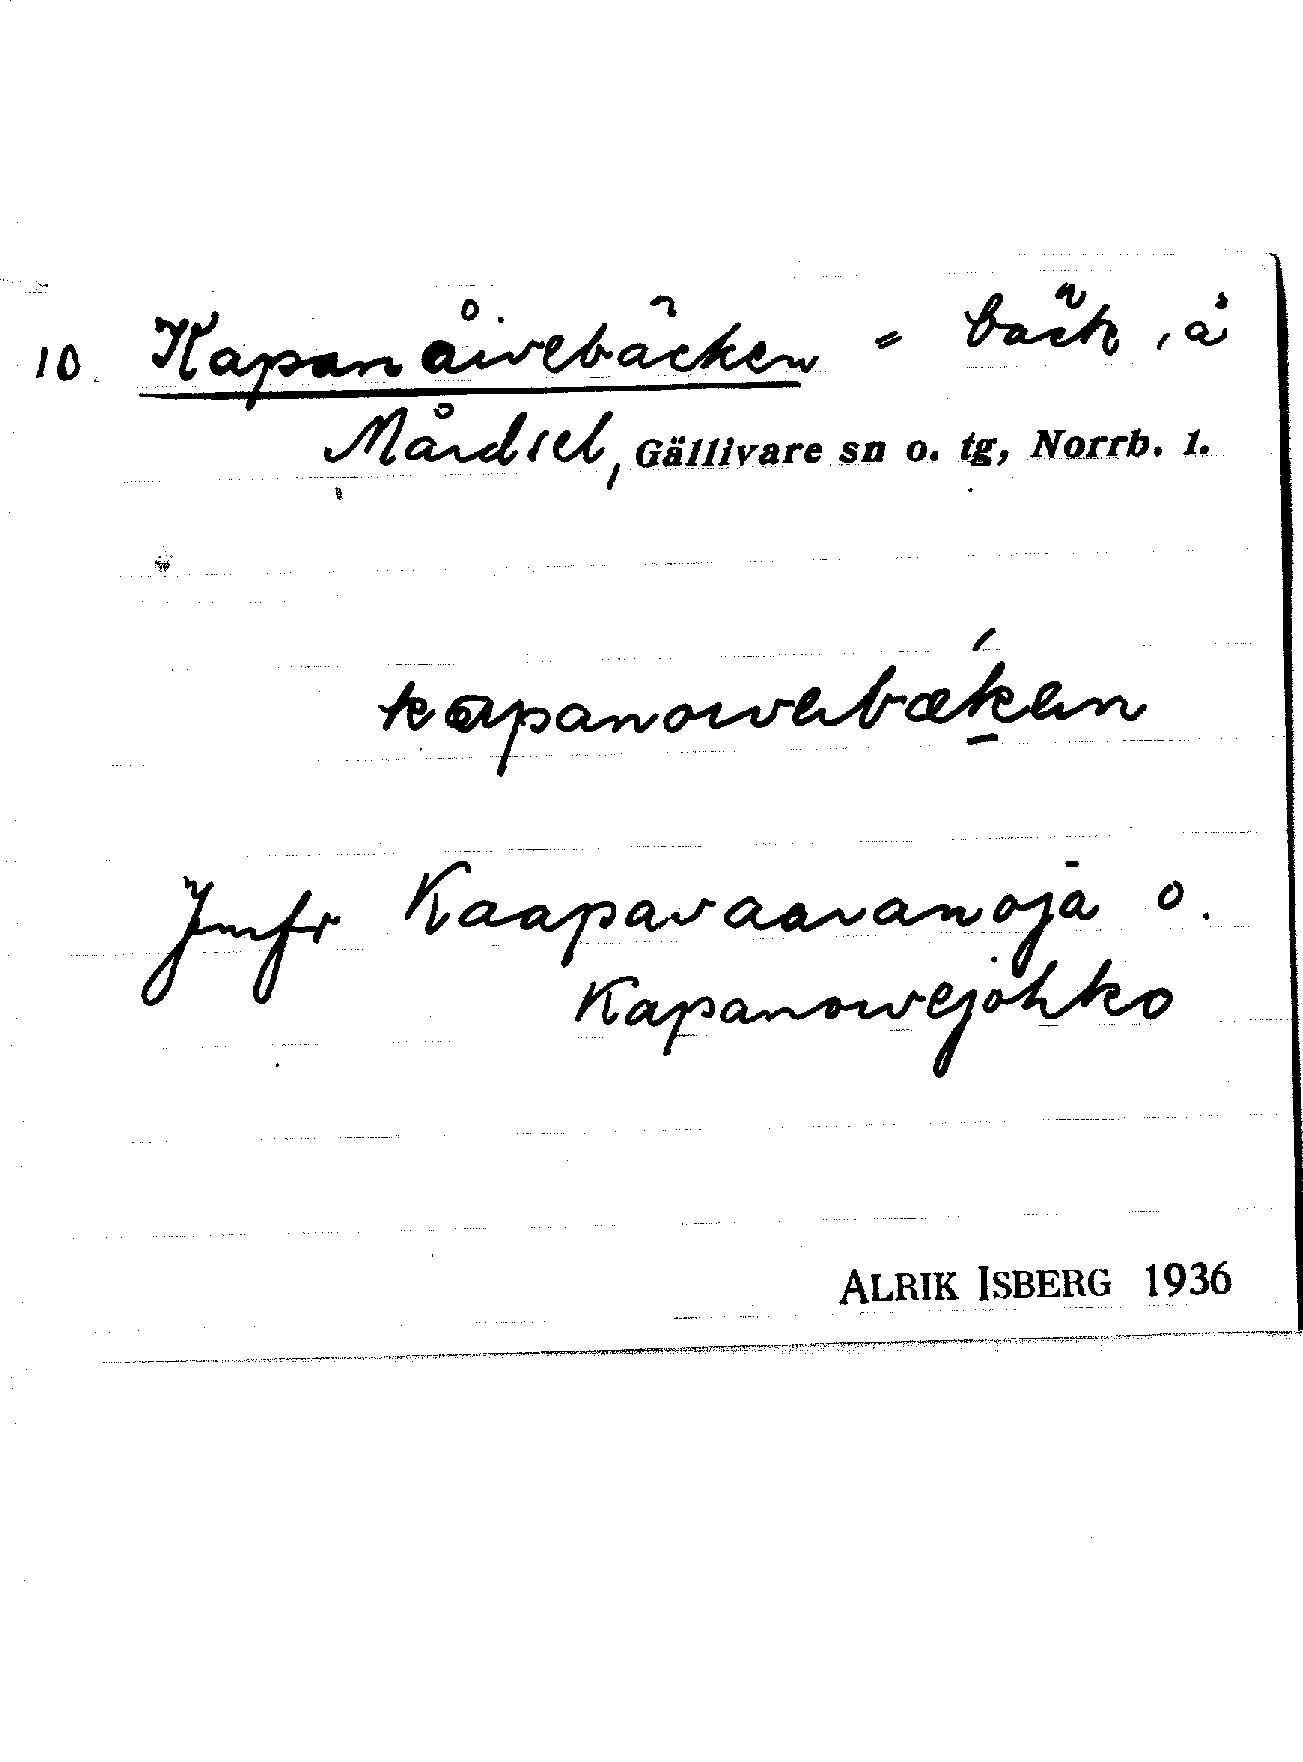 10 Kapanåivebäcken = bäck, å
Mårdsel, Gällivare sn o. tg, Norrb. l.
kapanoivebæken
Jmfr Kaapavaaranoja o.
Kapanoivejohko
ALRIK ISBERG 1936